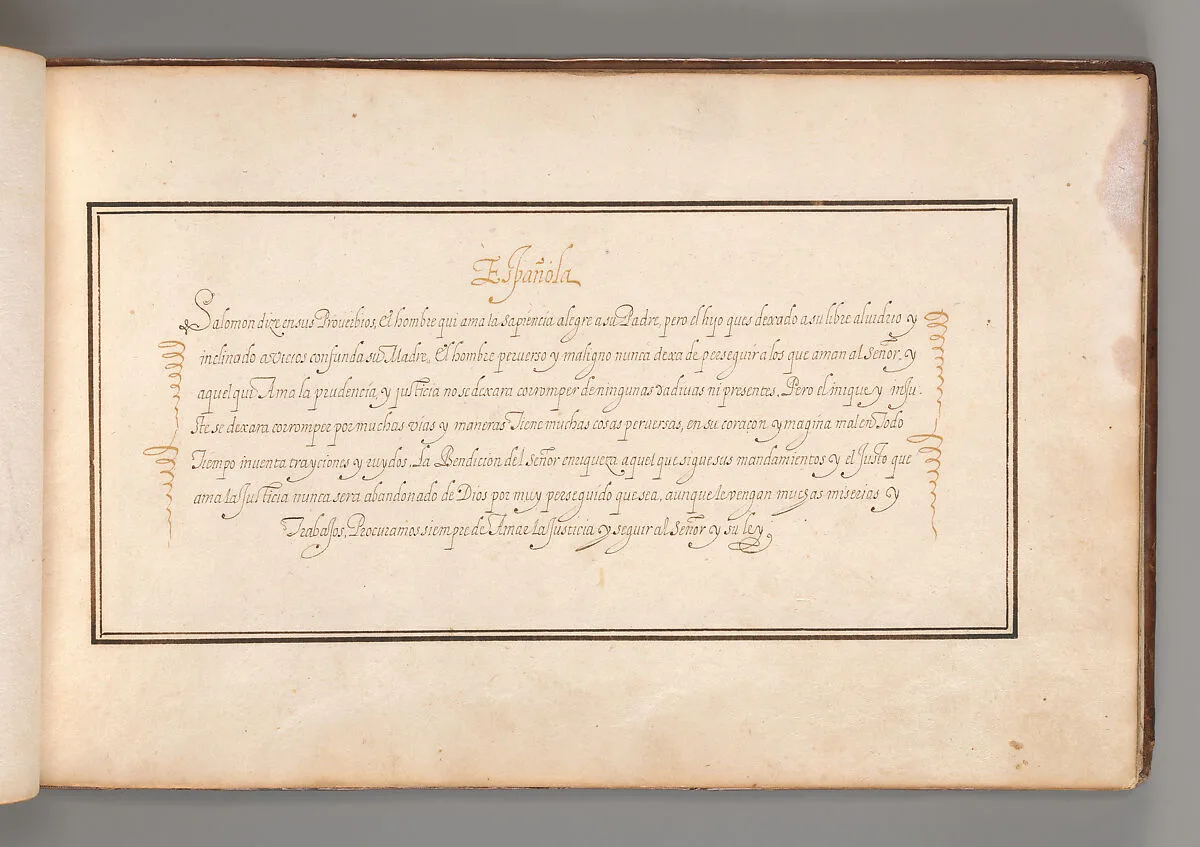 Española
Salomon dize en sus Proueibios, El hombre qui ama la sapiencia alegre a su Padre, pero el hijo ques dexado a su libre aluidrio y
inclinado a vicios confunda su Madre. El hombre peruerso y maligno nunca dexa de peeseguir a los que aman al Señor, y
aquel qui Ama la prudencia, y justicia no se dexara corromper de ningunas dadiuas ni presentes. Pero el inique y inju-
ste se dexara corromper por muchas vias y maneras Tiene muchas cosas peruersas, en su coraçon y magina mal en Todo
Tiempo inuenta trayciones y ruydos, La Bendicion del Señor enriqueza aquel que sigue sus mandamientos y el Justo que
ama la Justicia nunca sera abandonado de Dios por muy perseguido que sea, aunque le vengan muchas miserias y
Trabajos, Procuramos siempre de Amar la Justicia y seguir al Señor y su ley,